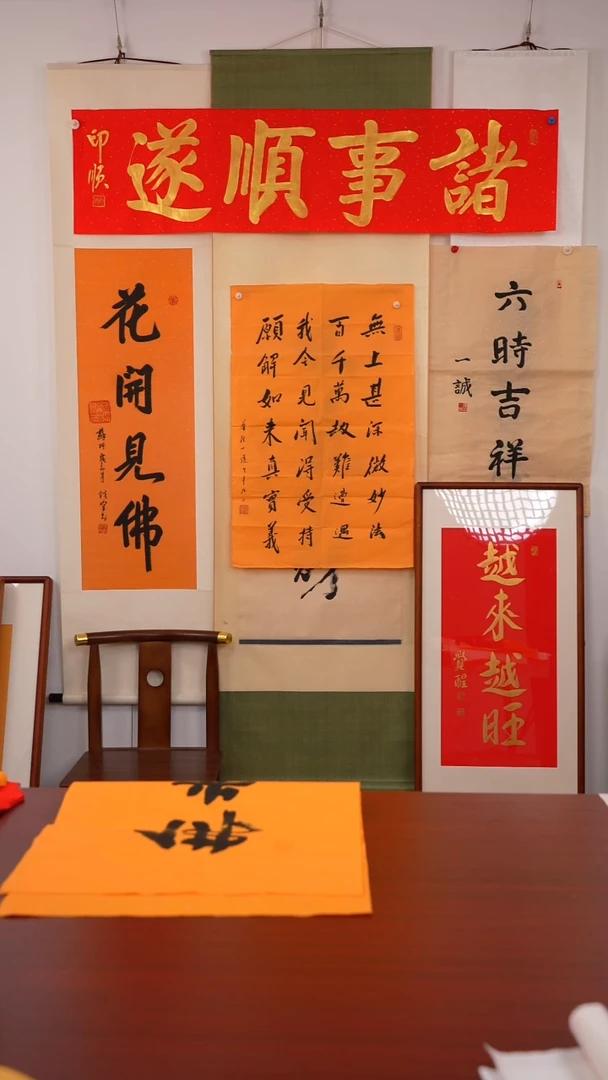 諸事順遂
印順
六時吉祥
一誠
無上甚深微妙法
百千萬劫難遭遇
我今見聞得受持
願解如来真實義
花開見佛
越來越旺
覺醒